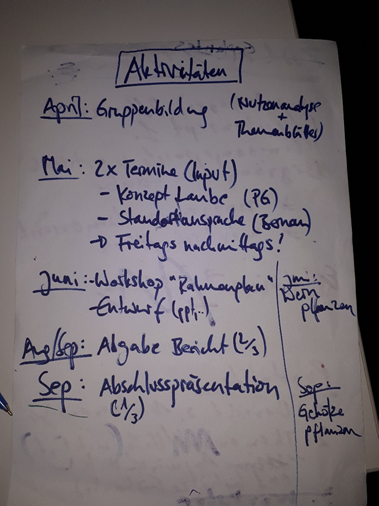 Aktivitäten
April: Gruppenbildung (Nutzeranalyse
+
Themenblätter)
Mai: 2x Termine (Input)
- Konzept Laube (PG)
- Standortansprache
→ Freitags nachmittags!
Juni: - Workshop "Rahmenplan"
- Entwurf (ppt..)
Juni:
Wein
pflanzen
Aug/Sep: Abgabe Bericht (2/3)
Sep: Abschlusspräsentation
(1/3)
Sep:
Gehölze
pflanzen